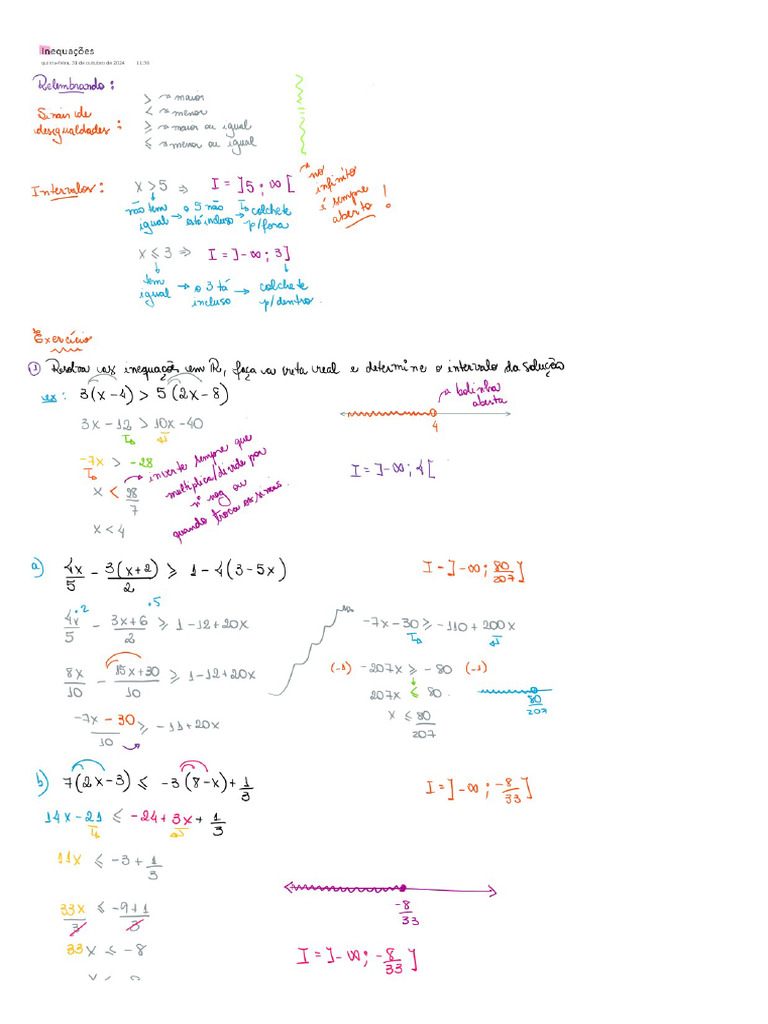 Inequações
quinta-feira, 31 de outubro de 2024 11:30
Relembrando:
Sinais de desigualdades:
> → maior
< → menor
⩾ → maior ou igual
⩽ → menor ou igual
Intervalos:
x > 5 ⇒ I = ]5 ; ∞[
→ no infinito é sempre aberto!
não tem igual → o 5 não está incluso → colchete p/fora
x ⩽ 3 ⇒ I = ]-∞ ; 3]
tem igual → o 3 tá incluso → colchete p/dentro.
Exercício
1 Resolva as inequações em R, faça a reta real e determine o intervalo da solução
ex: 3(x-4) > 5(2x-8)
→ bolinha aberta
4
3x-12 > 10x-40
-7x > -28
I = ]-∞ ; 4[
x < 28/7 → inverte sempre que multiplica/divide por nº neg ou quando troca os sinais.
x < 4
a) 4x/5 - 3(x+2)/2 ⩾ 1-4(3-5x)
I = ]-∞ ; 80/207]
4x/5 ·2 - 3x+6/2 ·5 ⩾ 1-12+20x
8x/10 - 15x+30/10 ⩾ 1-12+20x
-7x-30/10 ⩾ -11+20x
-7x-30 ⩾ -110+200x
(-1) -207x ⩾ -80 (-1)
207x ⩽ 80.
x ⩽ 80/207
80/207
b) 7(2x-3) ⩽ -3(8-x)+1/3
I = ]-∞ ; -8/33]
14x-21 ⩽ -24+3x+1/3
11x ⩽ -3+1/3
33x/3 ⩽ -9+1/3
33x ⩽ -8
-8/33
I = ]-∞ ; -8/33]